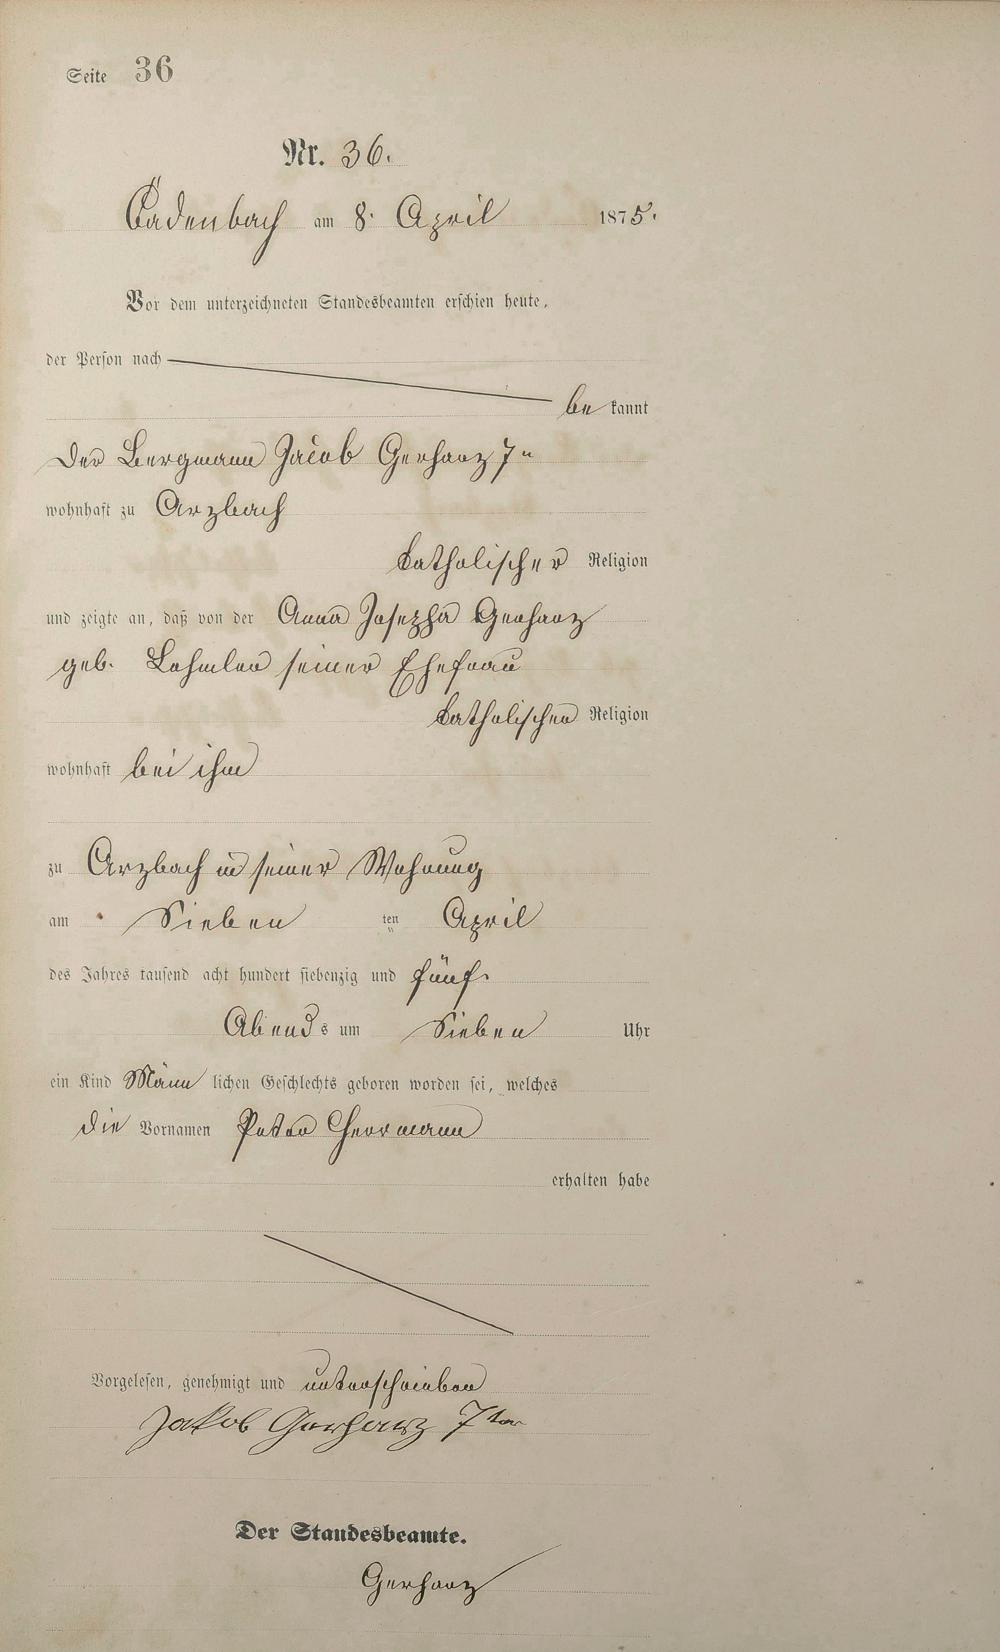 Seite 36
Nr. 36.
Cadenbach am 8. April 1875.
Vor dem unterzeichneten Standesbeamten erschien heute,
der Person nach
be kannt
Der Bergmann Jacob Gerharz 7"
wohnhaft zu Arzbach
katholischer Religion
und zeigte an, daß von der Anna Josepha Gerharz
geb. Lehmler seiner Ehefrau
katholischen Religion
wohnhaft bei ihm
zu Arzbach in seiner Wohnung
am Sieben ten April
des Jahres tausend acht hundert siebenzig und fünf.
Abends um Sieben Uhr
ein Kind Männ lichen Geschlechts geboren worden sei, welches
die Vornamen Peter Herrmann
erhalten habe
Vorgelesen, genehmigt und unterschrieben
Jakob Gerharz 7ter
Der Standesbeamte.
Gerharz